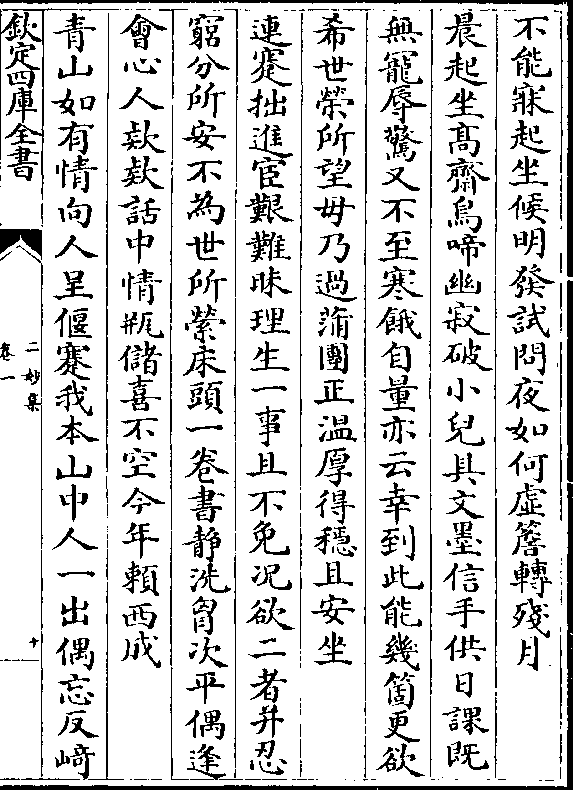 不能寐起坐候明發試問夜如何虛簷轉殘月
晨起坐髙齋鳥啼幽寂破小兒具文墨信手供日課既
無寵辱驚又不至寒餓自量亦云幸到此能幾箇更欲
希世榮所望毋乃過蒲團正温厚得穩且安坐
連蹇拙進宦艱難昧理生一事且不免况欲二者并忍
窮分所安不為世所縈床頭一巻書靜洗胷次平偶逢
會心人欵欵話中情瓶儲喜不空今年頼西成
青山如有情向人呈偃蹇我本山中人一出偶忘反﨑
欽定四庫全書
二妙集
卷一
十